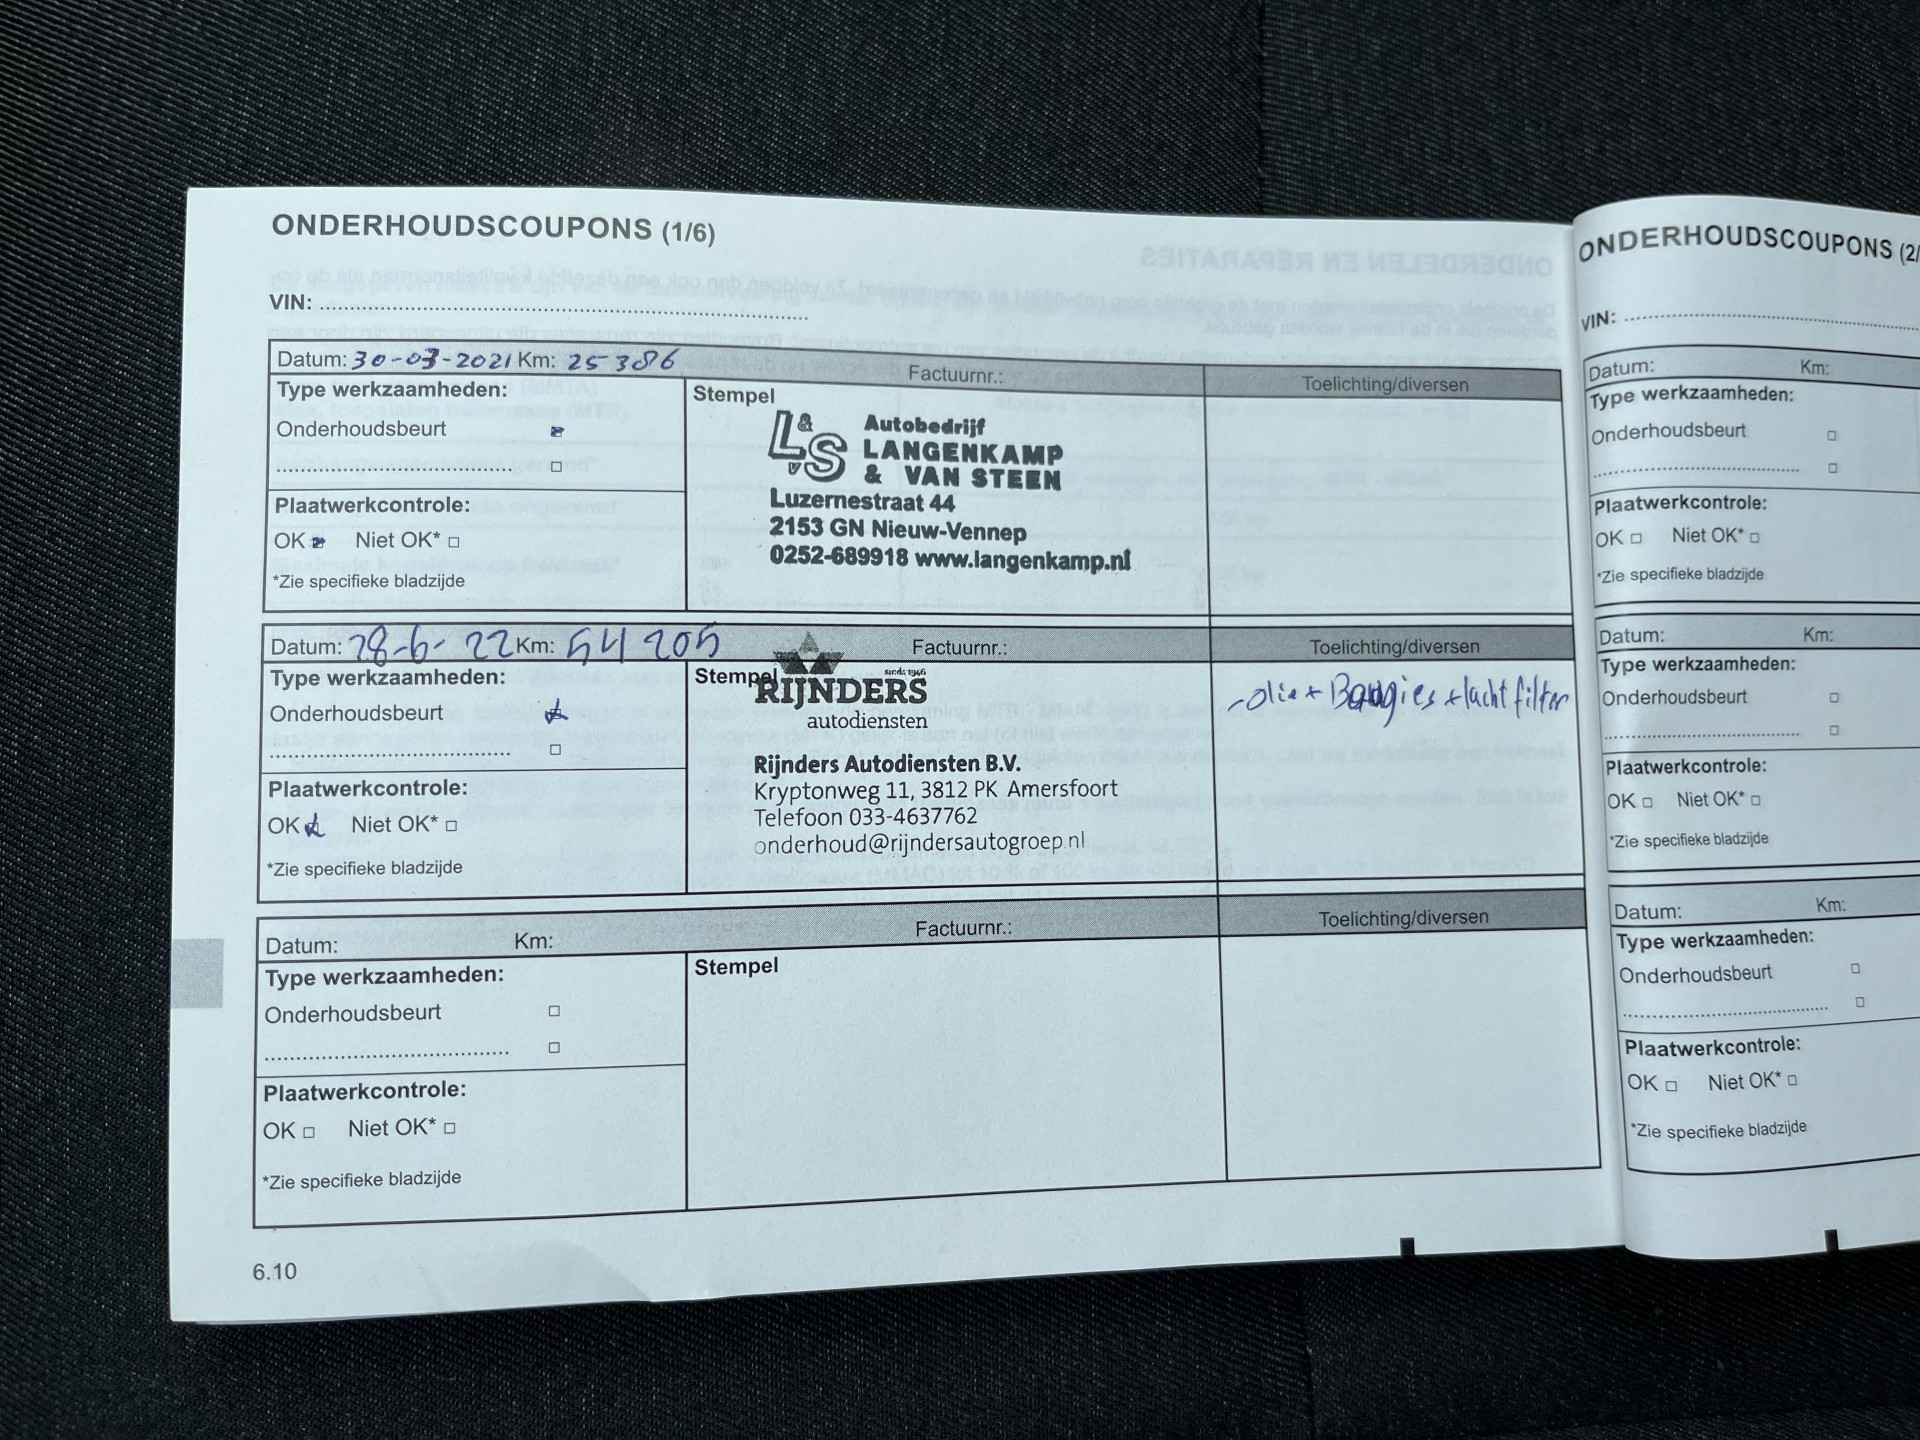 ONDERHOUDSCOUPONS (1/6)
VIN:
Datum: 30-03-2021 Km: 25 386 Factuurnr.: Toelichting/diversen
Type werkzaamheden:
Onderhoudsbeurt
Plaatwerkcontrole:
OK Niet OK*
*Zie specifieke bladzijde
Stempel
L&S
v
Autobedrijf
LANGENKAMP
& VAN STEEN
Luzernestraat 44
2153 GN Nieuw-Vennep
0252-689918 www.langenkamp.nl
Datum: 28-6-22 Km: 54 205 Factuurnr.: Toelichting/diversen
Type werkzaamheden:
Onderhoudsbeurt
Plaatwerkcontrole:
OK Niet OK*
*Zie specifieke bladzijde
Stempel
sinds 1946
RIJNDERS
autodiensten
Rijnders Autodiensten B.V.
Kryptonweg 11, 3812 PK Amersfoort
Telefoon 033-4637762
onderhoud@rijndersautogroep.nl
-olie + Bougies + lucht filter
Datum: Km: Factuurnr.: Toelichting/diversen
Type werkzaamheden:
Onderhoudsbeurt
Plaatwerkcontrole:
OK Niet OK*
*Zie specifieke bladzijde
Stempel
6.10
ONDERHOUDSCOUPONS (2/
VIN:
Datum: Km:
Type werkzaamheden:
Onderhoudsbeurt
Plaatwerkcontrole:
OK Niet OK*
*Zie specifieke bladzijde
Datum: Km:
Type werkzaamheden:
Onderhoudsbeurt
Plaatwerkcontrole:
OK Niet OK*
*Zie specifieke bladzijde
Datum: Km:
Type werkzaamheden:
Onderhoudsbeurt
Plaatwerkcontrole:
OK Niet OK*
*Zie specifieke bladzijde